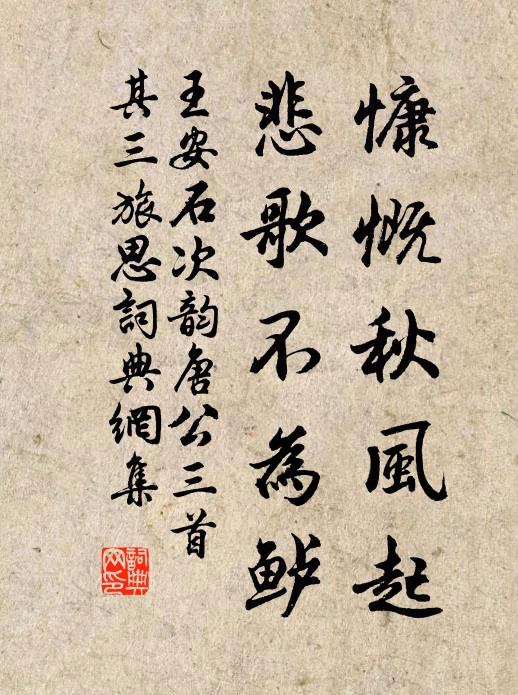 慷慨秋風起
悲歌不為鲈
王安石次韵唐公三首
其三旅思詞典網集